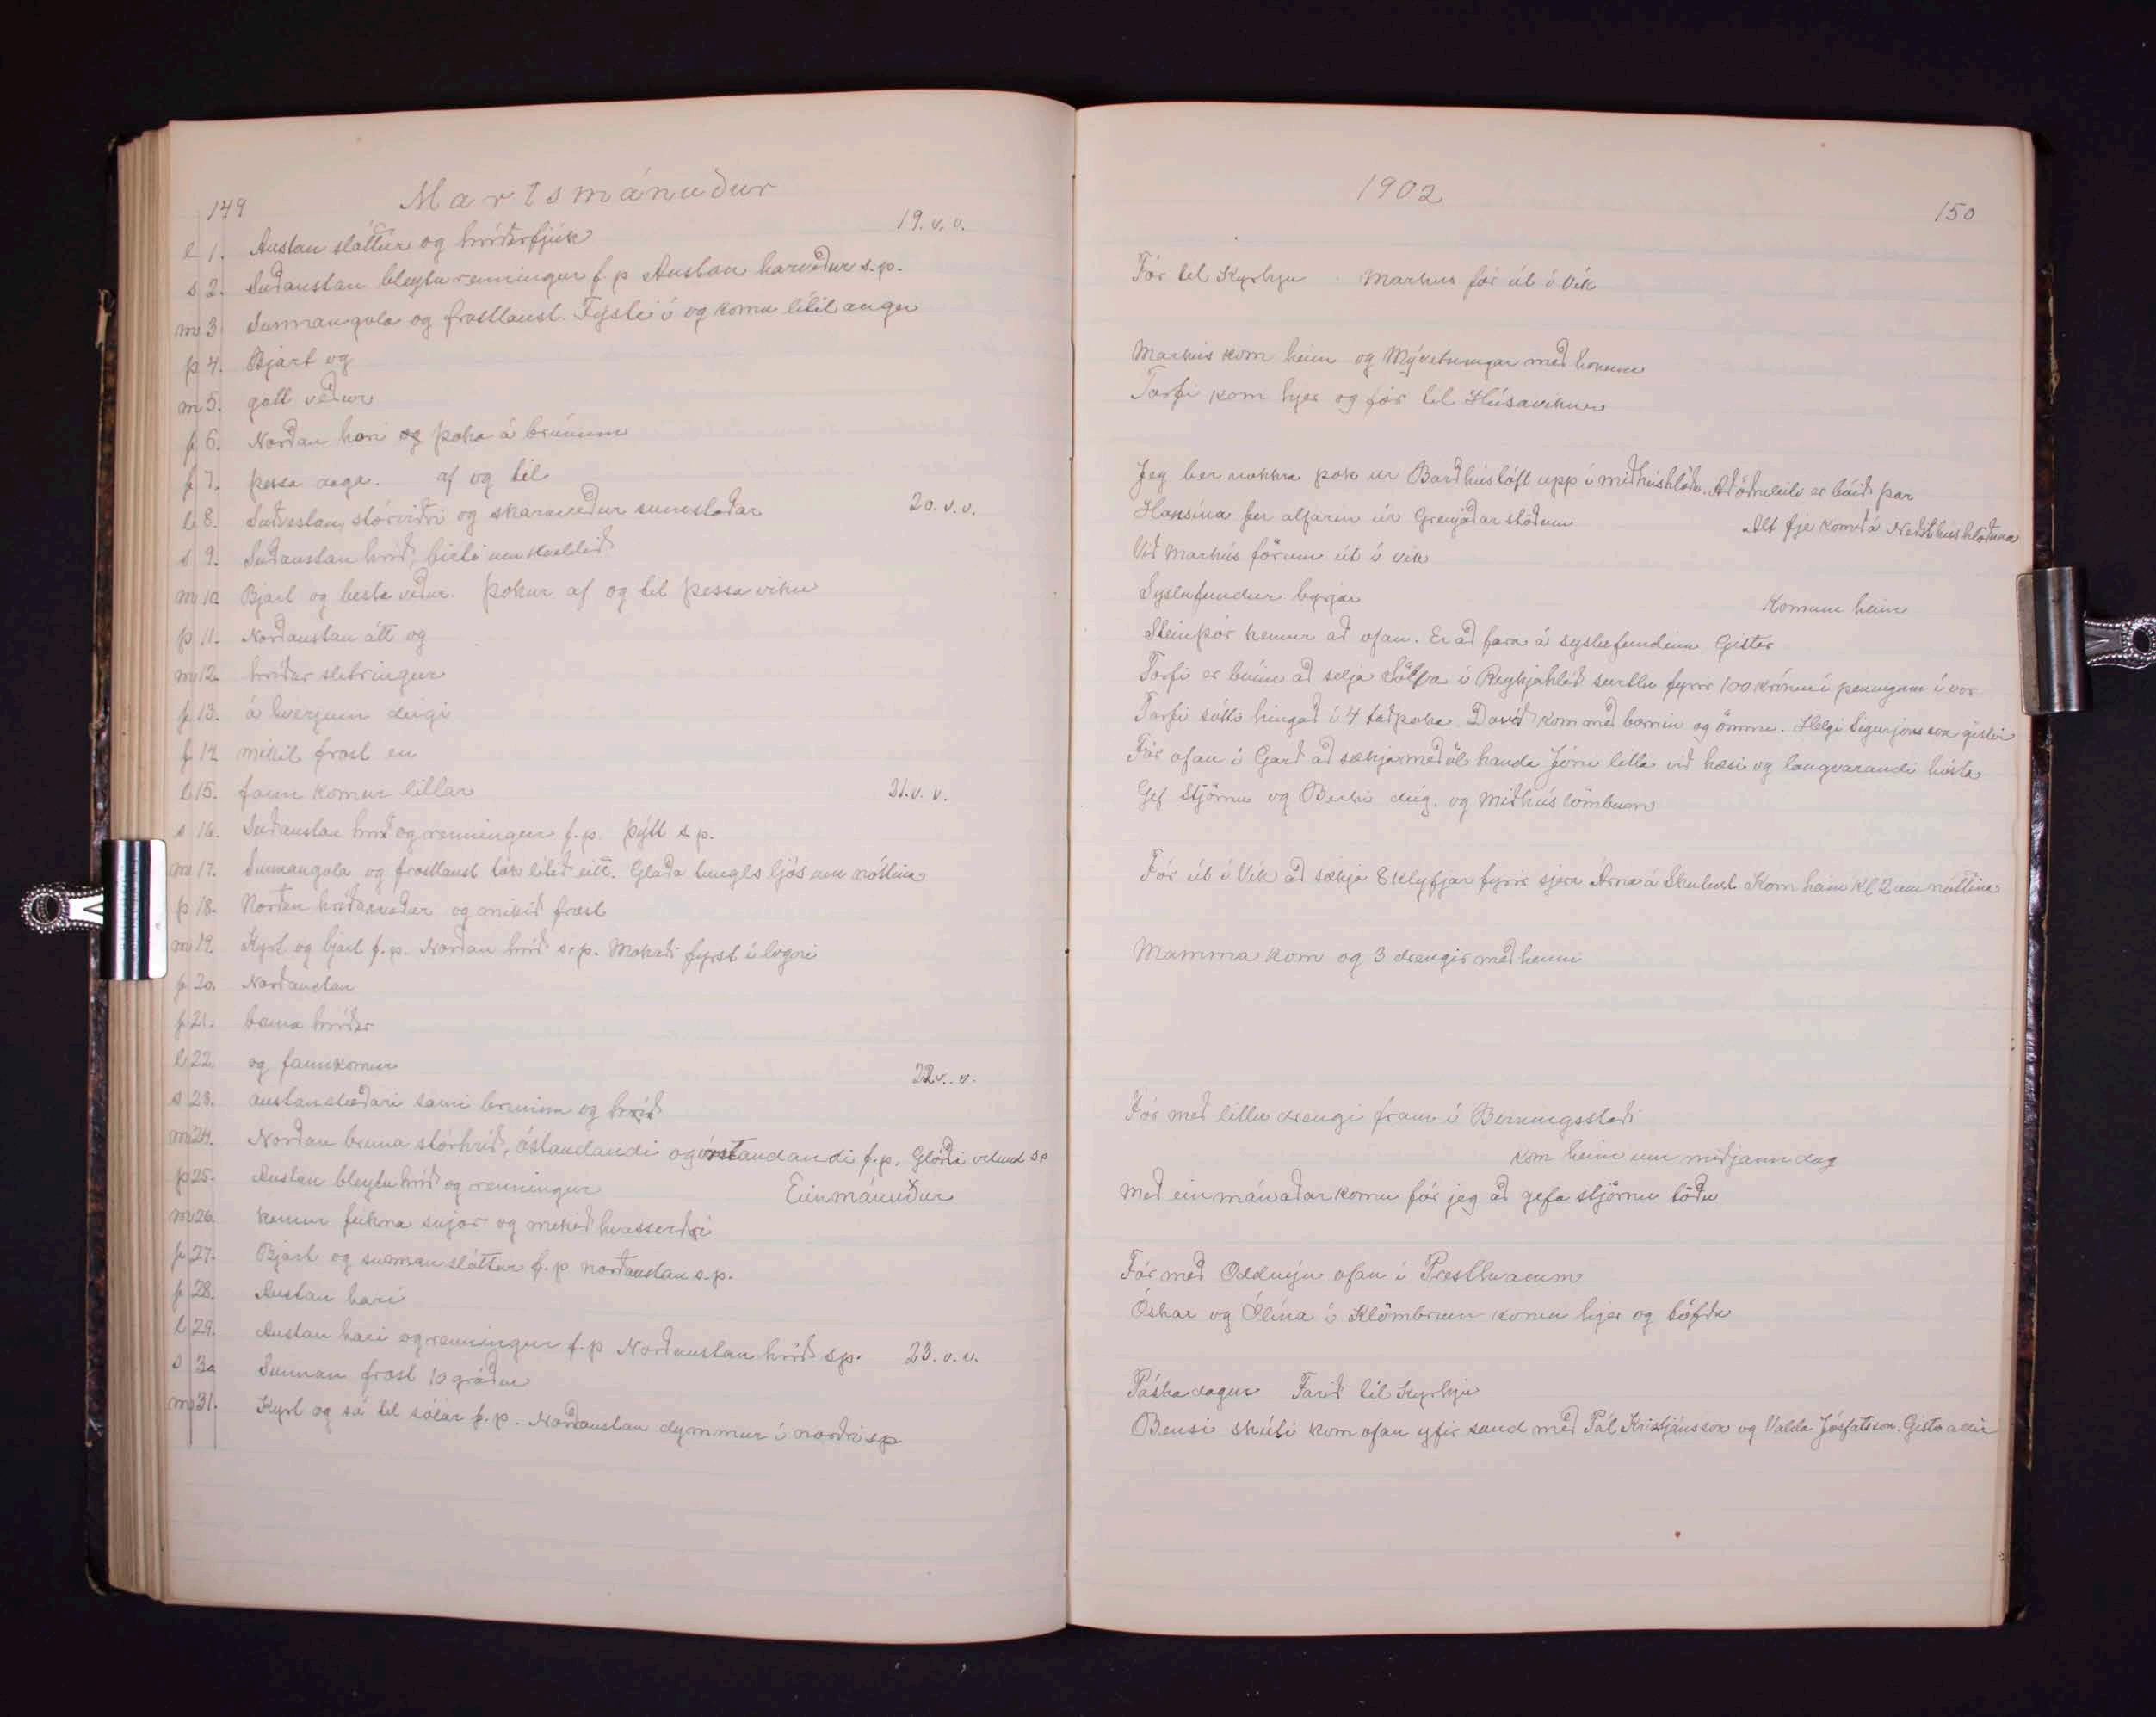 149
Martsmánuður
19. v. v.
l 1. Austan sláttur og hríðarfjúk
s 2. Suðaustan bleytu renningur f. p Austan harveður s. p.
m 3 Sunnan gola og frostlaust. Tysti í og komu lítil augu
þ 4. Bjart og
m 5. gott veður
f 6. Norðan kari og þoka á brúnum
f 7. þessa daga. af og til
l 8. Suðvestan stórviðri og skaraveður sumstaðar 20. v. v.
s 9. Suðaustan hríð, birti um kveldið
m 10 Bjart og besta veður. þokur af og til þessa viku
þ 11. Norðaustan átt og
m 12. hríðar slitringur
f 13. á hverjum deigi
f 14 mikil frost en
l 15. fann komur litlar 21. v. v.
s 16. Suðaustan hríð og renningur f. p. þýtt s p.
m 17. Sunnangola og frostlaust tók lítið eitt. Glaða tungls ljós um nóttina
þ 18. Norðan hríðarveður og mikið frost
m 19. Kyrt og bjart f. p. Norðan hríð s. p. Mokaði fyrst í logni
f 20. Norðaustan
f 21. bruna hríðar
l 22. og fannkomur
22 v. v.
s 23. austanstæðari sami bruninn og hríð
m 24. Norðan bruna stórhríð, óstandandi og óratandi f. p. s p
þ 25. Austan bleytu hríð og renningur Einmánuður
m 26. kemur feikna snjór og mikið hvassviðri
f 27. Bjart og sunnan sláttur f. p norðaustan s. p.
f 28. Austan kari
l 29. Austan kari og renningur f. p Norðaustan hríð s p. 23. v. v.
s 30 Sunnan frost 10 gráður
m 31. Kyrt og sá til sólar f. p. Norðaustan dymmur í norðri s p
1902
150
Fór til Kyrkju Markús fór út í Vík
Markús kom heim og Mývetningar með honum
Torfi kom hjer og fór til Húsavikur
Jeg ber nokkra pok ur Barðhúslóft upp í miðhúshlöðu. Að öðruleiti er búið þar
Hansína fer alfarin úr Grenjaðar stöðum Alt fje komið á Neðsthús hlöðuna
Við Markús förum út í vík
Syslufundur byrjar Komum heim
Steinþór kemur að ofan. Er að fara á syslufundinn Gistir
Torfi er búinn að selja Sölva í Reykjahlíð surtlu fyrir 100 krónur í peningum í vor
Torfi sótti hingað í 4 taðpoka. Davíð kom með börnin og ömmu. Helgi Sigurjónsson gisti
Fór ofan í Garð að sækja meðöl handa Jóni litla við hæsi og langvarandi hósta
Gef Stjörnu og deig. og Miðhús lömbum
Fór út í Vík að sækja 8 klyfjar fyrir sjera Árna á Skutust Kom heim kl 2 um nóttina
Mamma kom og 3 drengir með henni
Fór með litlu drengi fram í Brennigsstaði
kom heim um miðjann dag
Með einmánaðar komu fór jeg að gefa stjörnu töðu
Fór með Oddnýu ofan í Presthvamm
Óskar og Ólína í Klömbrum komu hjer og töfðu
Páska dagur Farið til Kyrkju
Bensi skúli kom ofan yfir sand með Pál Kristjánsson og Valda Jósfatsson. Gista allir